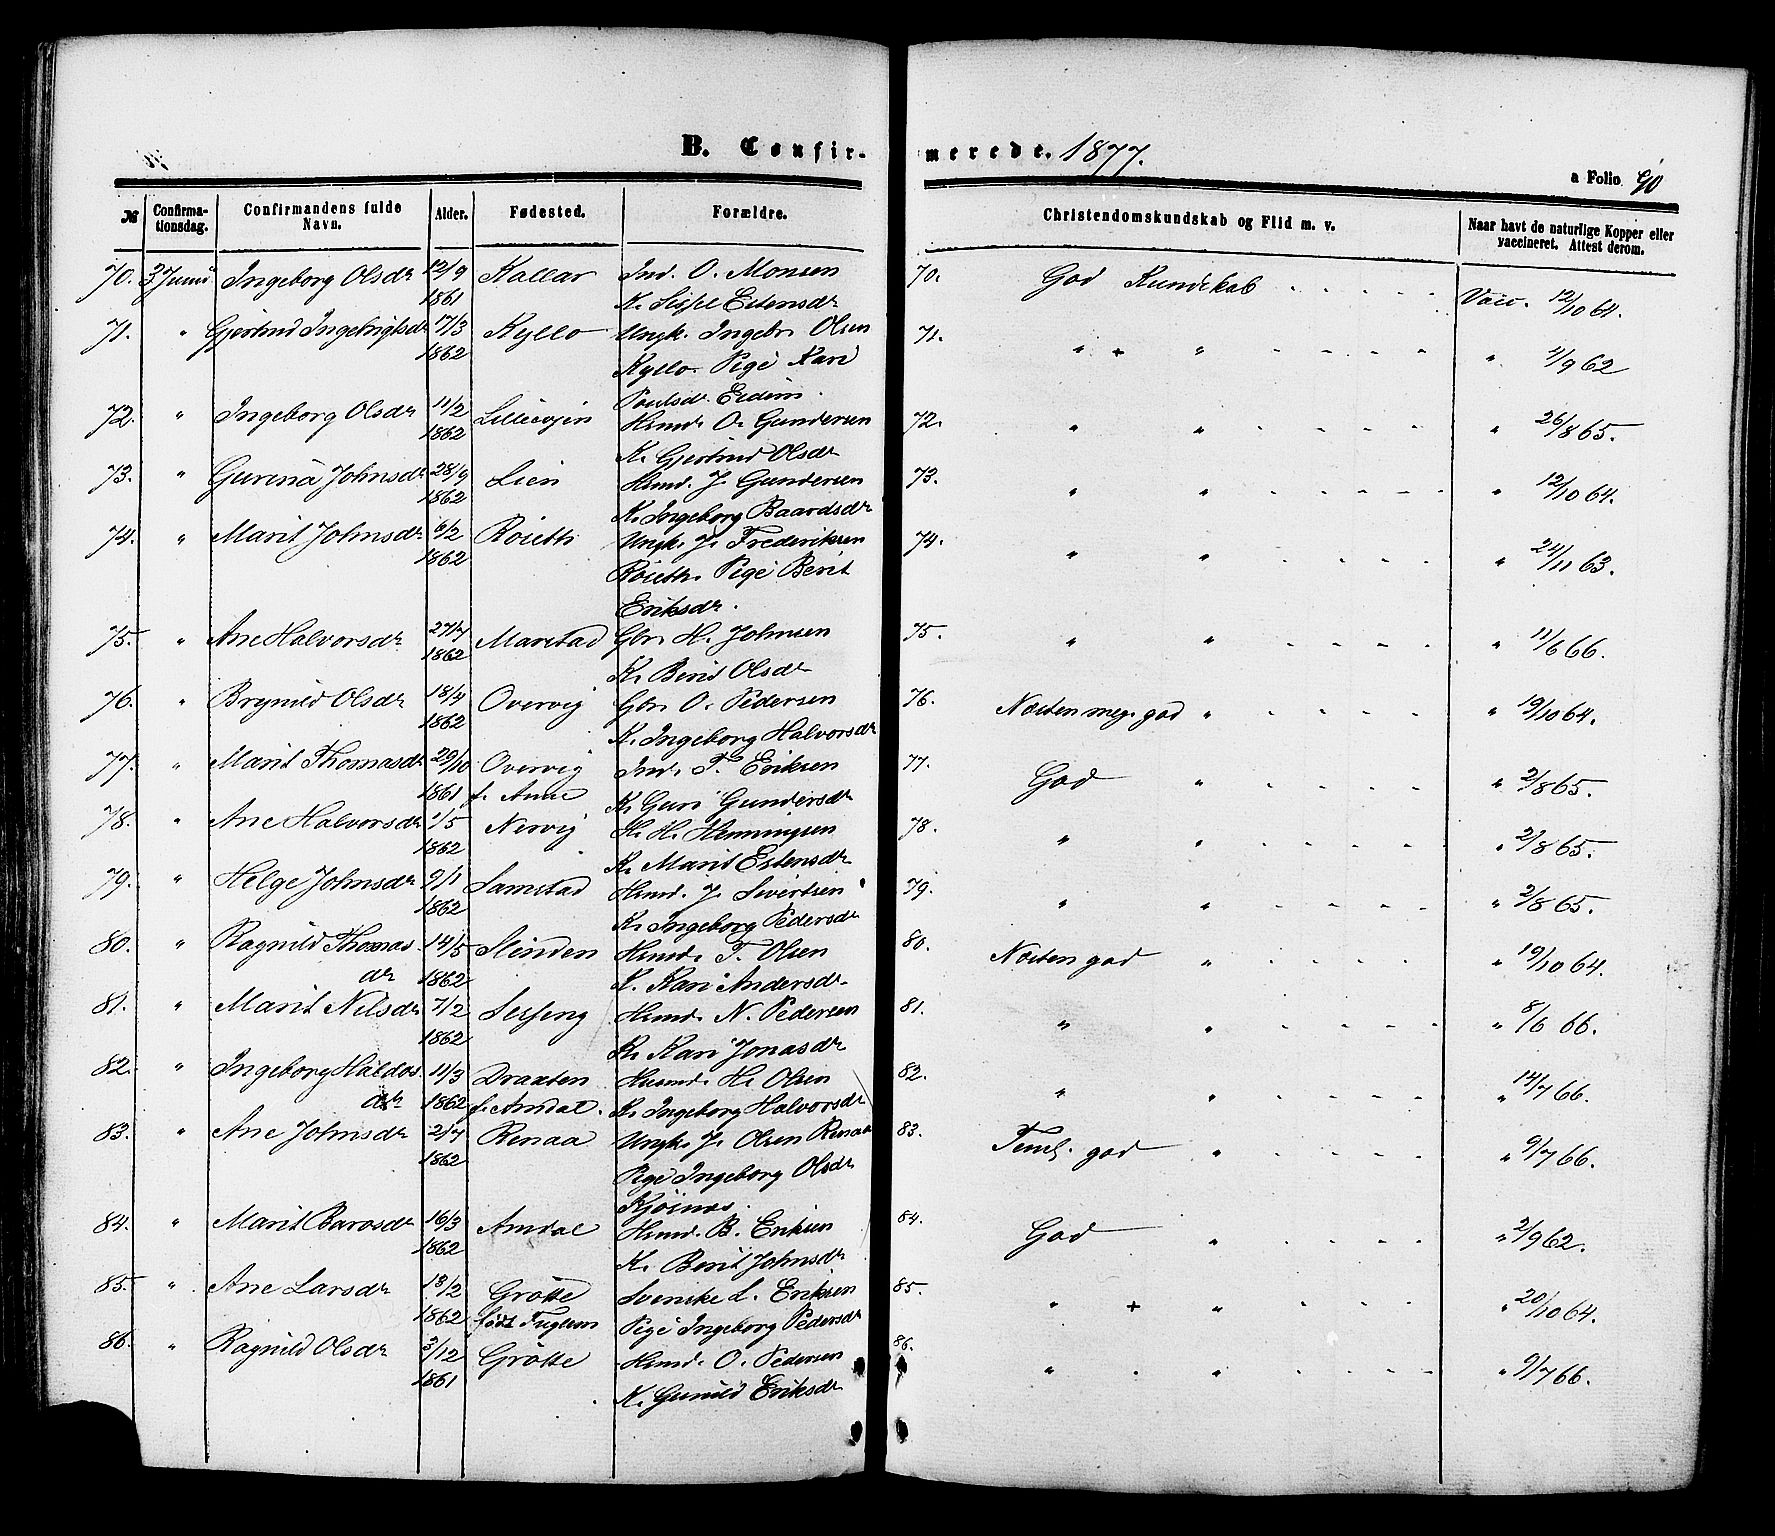 B. Confirmerede. 1877.
a Folio 90
№ Confirmationsdag. Confirmandens fulde Navn. Alder. Fødested. Forældre. Christendomskundskab og Flid m. v. Naar havt de naturlige Kopper eller vaccineret. Attest derom.
70. 3 Juni Ingeborg Olsdr 12/9 1861 Kallar Ind. O. Monsen 70. God Kundskab Vacc. 12/10 64.
K. Sissel Estensdr
71. " Gjertrud Ingebrigtsdr 17/3 1862 Kyllo Ungk. Ingebr. Olsen 71. " + " " 4/9 62
Kyllo. Pige Kari
Poulsdr. Eidem.
72. " Ingeborg Olsdr 11/2 1862 Lillevjen Husmd. O. Gundersen 72. " " " 26/8 65.
K. Gjertrud Olsdr
73. " Gurina Johnsdr 28/9 1862 Lien Husmd. J. Gundersen 73. " " " 12/10 64.
K. Ingeborg Baardsdr
74. " Marit Johnsdr 6/2 1862 Røieth Ungk. J. Frederiksen 74. " " " 24/11 63.
Røieth. Pige Berit
Eriksdr.
75. " Ane Halvorsdr 27/7 1862 Marstad Gbr. H. Johnsen 75. " " " 11/6 66.
K. Berit Olsdr
76. " Brynild Olsdr 18/4 1862 Overvig Gbr. O. Pedersen 76. Næsten meg. god " " 19/10 64.
K. Ingeborg Halvorsdr
77. " Marit Thomasdr 29/10 1861 Overvig Ind. T. Eriksen 77. God " " 2/8 65.
f. Aune K. Guri Gundersdr
78. " Ane Halvorsdr 1/5 1862 Nervig H. H. Henningsen 78. " " " 2/8 65.
K. Marit Estensdr
79. " Helge Johnsdr 9/1 1862 Samstad Husmd. J. Sivertsen 79. " " " 2/8 65.
K. Ingeborg Pedersdr
80. " Ragnild Thomas- 14/5 Slinden Husmd. T. Olsen 80. Næsten god " " 19/10 64.
dr 1862 K. Kari Andersdr.
81. " Marit Nilsdr 7/2 1862 Selseng Husmd. N. Pedersen 81. " " " 8/6 66.
K. Kari Jonasdr
82. " Ingeborg Haldos- 11/3 Draaten Husmd. H. Olsen 82. " " " 14/7 66.
dr 1862 f. Amdal. K. Ingeborg Halvorsdr
83. " Ane Johnsdr 2/7 1862 Renaa Ungk. J. Olsen Renaa 83. Teml. god " " 9/7 66.
Pige Ingeborg Olsdr
Kjøsnæs.
84. " Marit Barosdr 16/3 1862 Amdal Husmd. B. Eriksen 84. God " " 2/9 62.
K. Berit Johnsdr
85. " Ane Larsdr 13/2 1862 Grøtte Svenske L. Eriksen 85. " + " " 20/10 64.
født Fuglem Pige Ingeborg Pedersdr
86. " Ragnild Olsdr 3/12 1861 Grøtte Husmd. O. Pedersen 86. " " " 9/7 66.
K. Gunild Eriksdr